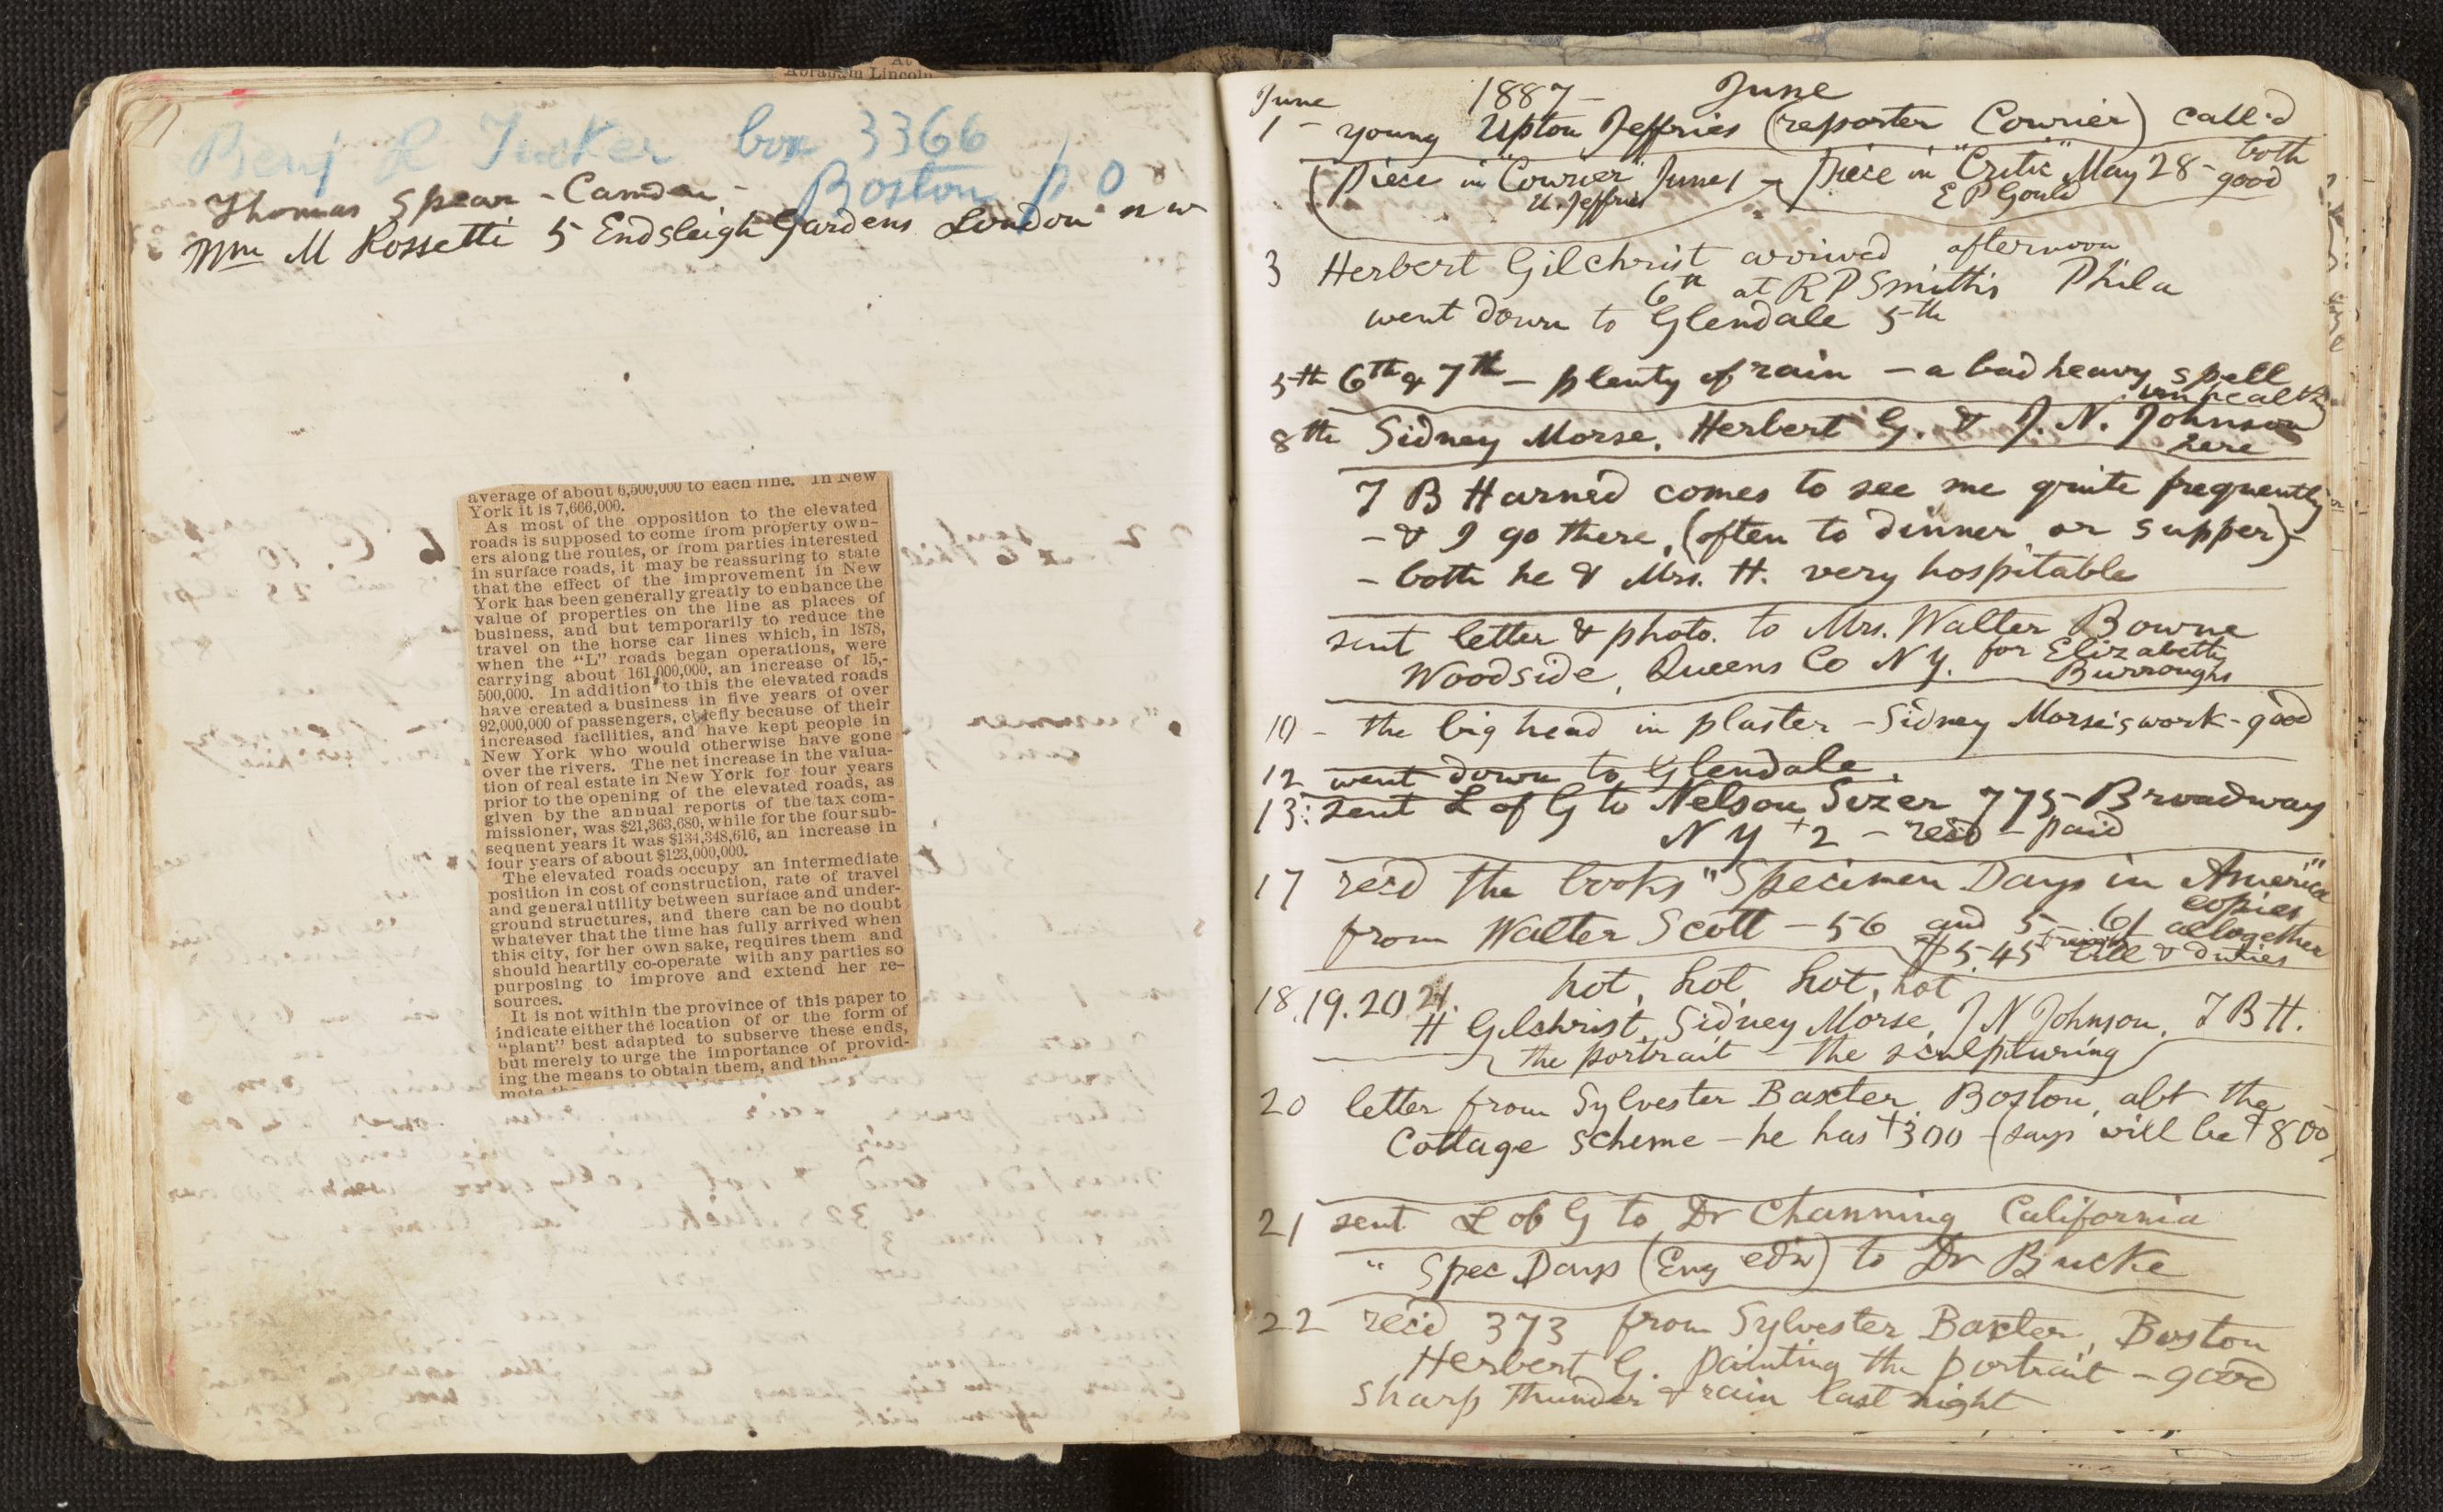 At
Abraham Lincoln
Benj R Tucker box 3366
Boston p o
Thomas Spear - Camden -
Wm M Rossetti 5 Endsleigh Gardens London n w
average of about 6,500,000 to each line. In New
York it is 7,666,000.
As most of the opposition to the elevated
roads is supposed to come from property own-
ers along the routes, or from parties interested
in surface roads, it may be reassuring to state
that the effect of the improvement in New
York has been generally greatly to enhance the
value of properties on the line as places of
business, and but temporarily to reduce the
travel on the horse car lines which, in 1878,
when the "L" roads began operations, were
carrying about 161,000,000, an increase of 15,-
500,000. In addition to this the elevated roads
have created a business in five years of over
92,000,000 of passengers, chiefly because of their
increased facilities, and have kept people in
New York who would otherwise have gone
over the rivers. The net increase in the valua-
tion of real estate in New York for four years
prior to the opening of the elevated roads, as
given by the annual reports of the tax com-
missioner, was $21,363,680; while for the four sub-
sequent years it was $134,348,616, an increase in
four years of about $123,000,000.
The elevated roads occupy an intermediate
position in cost of construction, rate of travel
and general utility between surface and under-
ground structures, and there can be no doubt
whatever that the time has fully arrived when
this city, for her own sake, requires them and
should heartily co-operate with any parties so
purposing to improve and extend her re-
sources.
It is not within the province of this paper to
indicate either the location of or the form of
"plant" best adapted to subserve these ends,
but merely to urge the importance of provid-
ing the means to obtain them, and thus
mote the
June 1887 - June
1 - young Upton Jeffries (reporter Courier) call'd
(piece in "Courier" June 1 - piece in "Critic" May 28 - both good
U. Jeffries E P Gould
3 Herbert Gilchrist arrived afternoon
6th at R P Smith's Phila
went down to Glendale 5th
5th 6th & 7th - plenty of rain - a bad heavy spell
unhealthy
8th Sidney Morse, Herbert G. & J. N. Johnson
here
T B Harned comes to see me quite frequently
- & I go there, (often to dinner or supper)
- both he & Mrs. H. very hospitable
sent letter & photo. to Mrs. Walter Bowne
Woodside, Queens Co N Y. for Elizabeth
Burroughs
10 - the big head in plaster - Sidney Morse's work - good
12 went down to Glendale
13: sent L of G to Nelson Sizer 775 Broadway
N Y $2 - rec'd - paid
17 rec'd the books "Specimen Days in America"
from Walter Scott - 56 and 5 - 61 copies altogether
$5.45 freight bill & duties
18.19.20 21. hot, hot, hot, hot
H Gilchrist, Sidney Morse, J N Johnson, T B H.
the portrait - the sculpturing
20 letter from Sylvester Baxter, Boston, abt the
Cottage scheme - he has $300 - (says will be $800)
21 sent L of G to Dr Channing California
" Spec Days (Eng ed'n) to Dr Bucke
22 rec'd 373 from Sylvester Baxter, Boston
Herbert G. painting the portrait - good
sharp thunder & rain last night